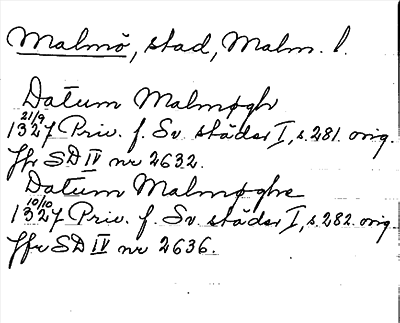 Malmö, stad, Malm. l.
Datum Malmøgh
21/9
1327 Priv. f. Sv städer I, s. 281. orig.
Jfr SD IV nr 2632.
Datum Malmøghe
10/10
1327 Priv. f. Sv städer I, s. 282. orig.
Jfr SD IV nr 2636.